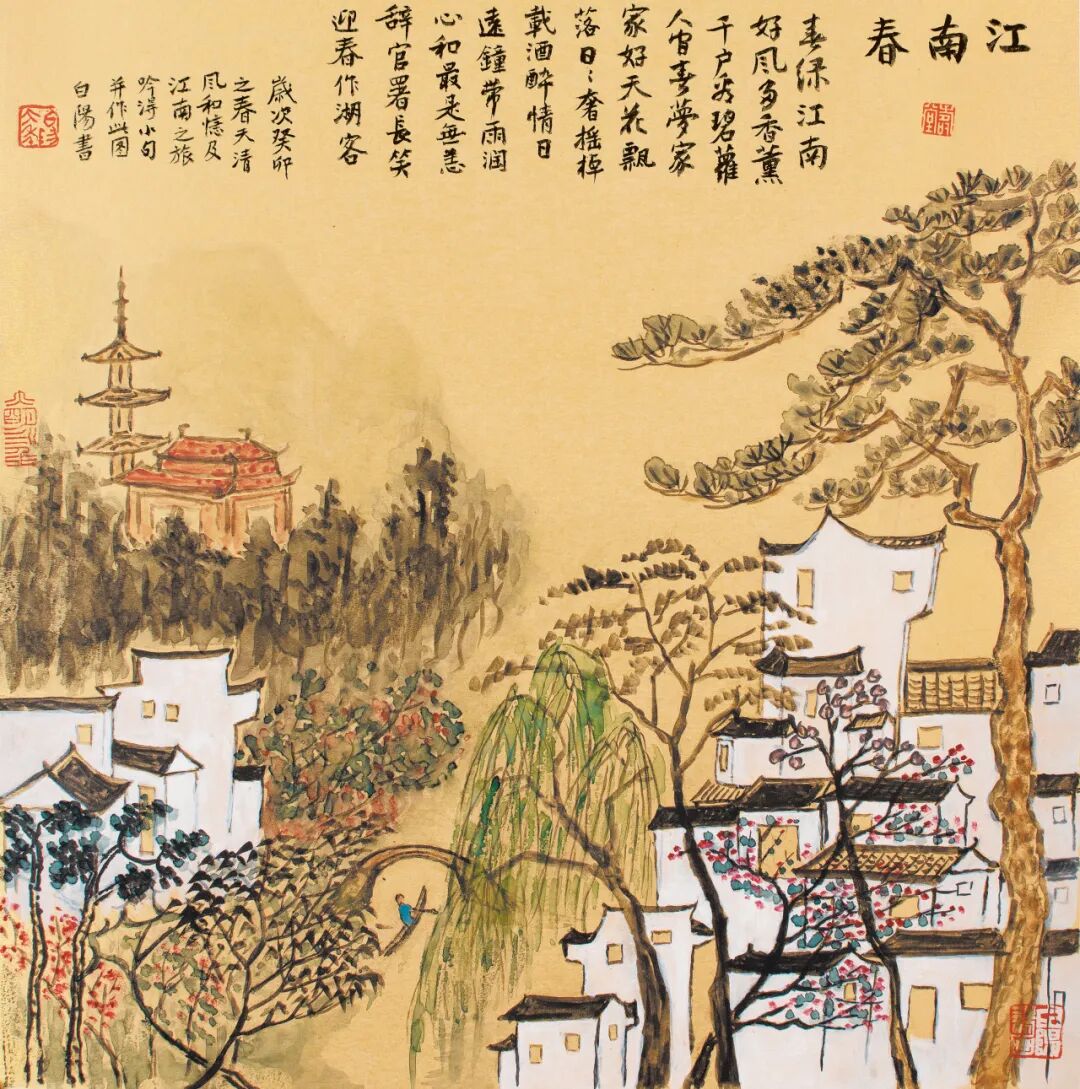 江南春
春绿江南
好风多香薰
千户秀碧蘿
人春夢家
家好天花飄
落日々奢摇棹
載酒醉情日
遠鐘带雨润
心和最是無恙
辞官署長笑
迎春作湖客
歲次癸卯
之春天清
风和憶及
江南之旅
吟得小句
并作此图
白陽書